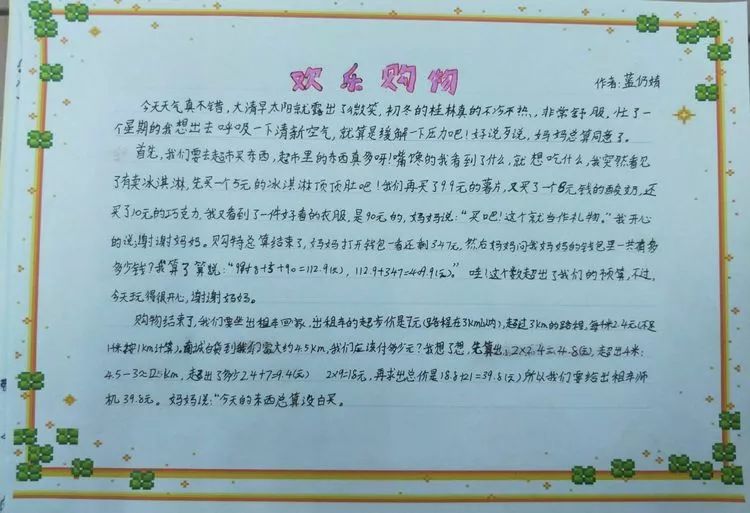 欢乐购物
作者:蓝仍婧
今天天气真不错,大清早太阳就露出了微笑,初冬的桂林真的不冷不热,非常舒服,忙了一
个星期的我想出去呼吸一下清新空气,就算是缓解一下压力吧!好说歹说,妈妈总算同意了。
首先,我们要去超市买东西,超市里的东西真多呀!嘴馋的我看到了什么,就想吃什么,我突然看见
了有卖冰淇淋,先买一个5元的冰淇淋顶顶肚吧!我们再买了9.9元的薯片,又买了一个8元钱的酸奶,还
买了10元的巧克力,我又看到了一件好看的衣服,是90元的,妈妈说:“买吧!这个就当作礼物。”我开心
的说:谢谢妈妈。购物总算结束了,妈妈打开钱包一看还剩347元,然后妈妈问我妈妈的钱包里一共有多
多少钱?我算了算说:“+8+5+90=112.9(元),112.9+347=409.9(元)。”哇!这个数超出了我们的预算,不过,
今天玩得很开心,谢谢妈妈。
购物结束了,我们要坐出租车回家,出租车的起步价是7元(路程在3km以内),超过3km的路程,每千米2.4元(不足
1千米按1km计算),商城白货到我们家大约4.5km,我们应该付多少元?我想了想,先算出,2×2.4=4.8(元),超出千米:
4.5-3≈2km,超出了多少2.4+7=9.4(元) 2×9=18元,再求出总价是18.8+21=39.8(元)所以我们要给出租车师
机39.8元。妈妈说:“今天的东西总算没白买。